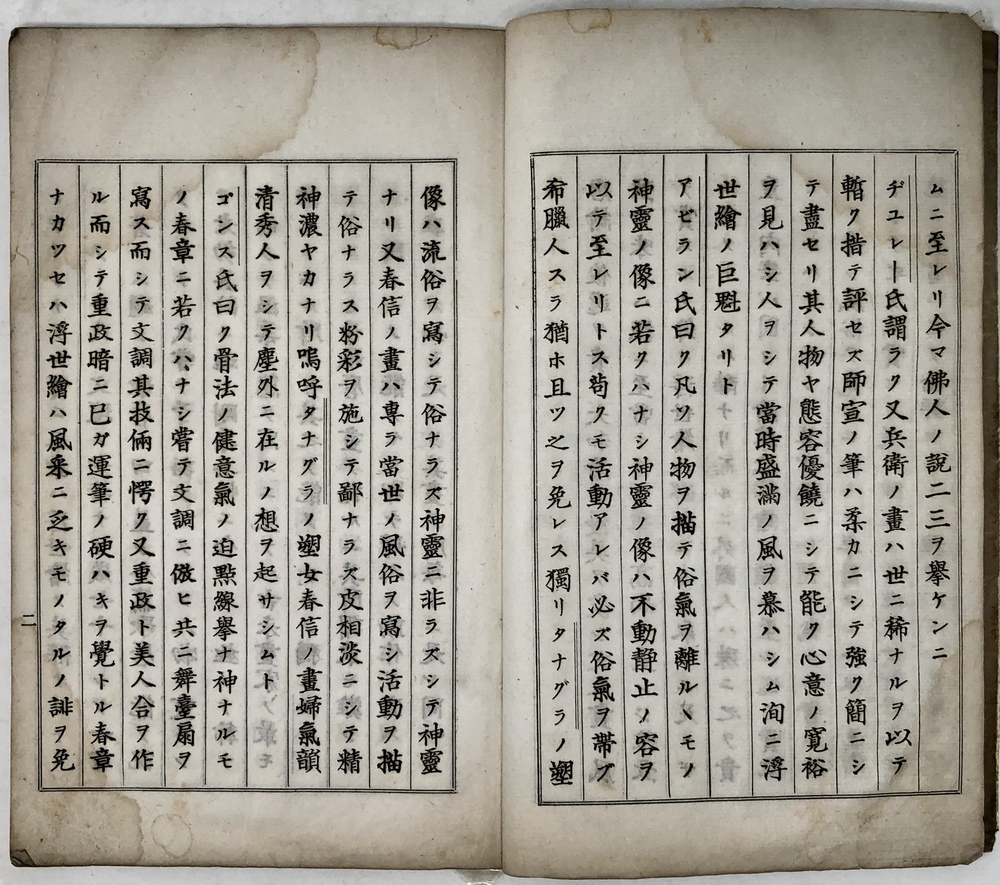 ムニ至レリ今マ佛人ノ說二三ヲ擧ケンニ
ヂユレー氏謂ラク又兵衛ノ畫ハ世ニ稀ナルヲ以テ
暫ク措テ評セズ師宣ノ筆ハ柔カニシテ強ク簡ニシ
テ盡セリ其人物ヤ態容優饒ニシテ能ク心意ノ寬裕
ヲ見ハシ人ヲシテ當時盛滿ノ風ヲ慕ハシム洵ニ浮
世繪ノ巨魁タリト
アビラン氏曰ク凡ソ人物ヲ描テ俗氣ヲ離ルヽモノ
神靈ノ像ニ若クハナシ神靈ノ像ハ不動靜止ノ容ヲ
以テ至レリトス苟クモ活動アレバ必ズ俗氣ヲ帶ブ
希臘人スラ猶ホ且ツ之ヲ免レス獨リタナグラノ塑
像ハ流俗ヲ寫シテ俗ナラズ神靈ニ非ラズシテ神靈
ナリ又春信ノ畫ハ専ラ當世ノ風俗ヲ寫シ活動ヲ描
テ俗ナラス粉彩ヲ施シテ鄙ナラズ皮相淡ニシテ精
神濃ヤカナリ嗚呼タナグラノ塑女春信ノ畫婦氣韻
清秀人ヲシテ塵外ニ在ルノ想ヲ起サシムト
ゴンス氏曰ク骨法ノ健意氣ノ迫點線擧ナ神ナルモ
ノ春章ニ若クハナシ嘗テ文調ニ倣ヒ共ニ舞臺扇ヲ
寫ス而シテ文調其技倆ニ愕ク又重政ト美人合ヲ作
ル而シテ重政暗ニ已ガ運筆ノ硬ハキヲ覺トル春章
ナカツセハ浮世繪ハ風采ニ乏キモノタルノ誹ヲ免
二